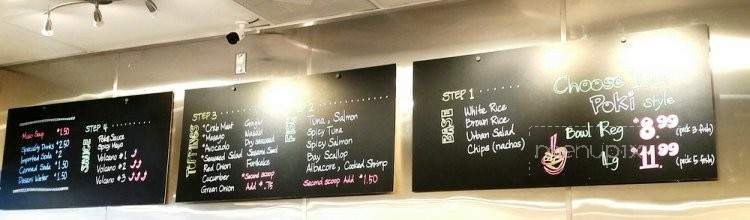 Miso Soup $1.50
Specialty Drinks $2.50
Imported Soda $2
Canned Soda $1.50
Desani Water $1.50
STEP 4
SAUCE
Poke Sauce
Spicy Mayo
Volcano #1
Volcano #2
Volcano #3
STEP 3
TOPPINGS
*Crab Meat
*Masago
*Avocado
*Seaweed Salad
Red Onion
Cucumber
Green Onion
Ginger
Wasabi
Dry seaweed
Sesame Seed
Furikake
*Second scoop
Add $.75
2
FISH
Tuna, Salmon
Spicy Tuna
Spicy Salmon
Bay Scallop
Albacore, Cooked Shrimp
Second scoop Add $1.50
STEP 1
BASE
White Rice
Brown Rice
Urban Salad
Chips (nachos)
Choose
Poki style
Bowl Reg $8.99 (pick 3 fish)
Lg 11.99 (pick 5 fish)
menupix